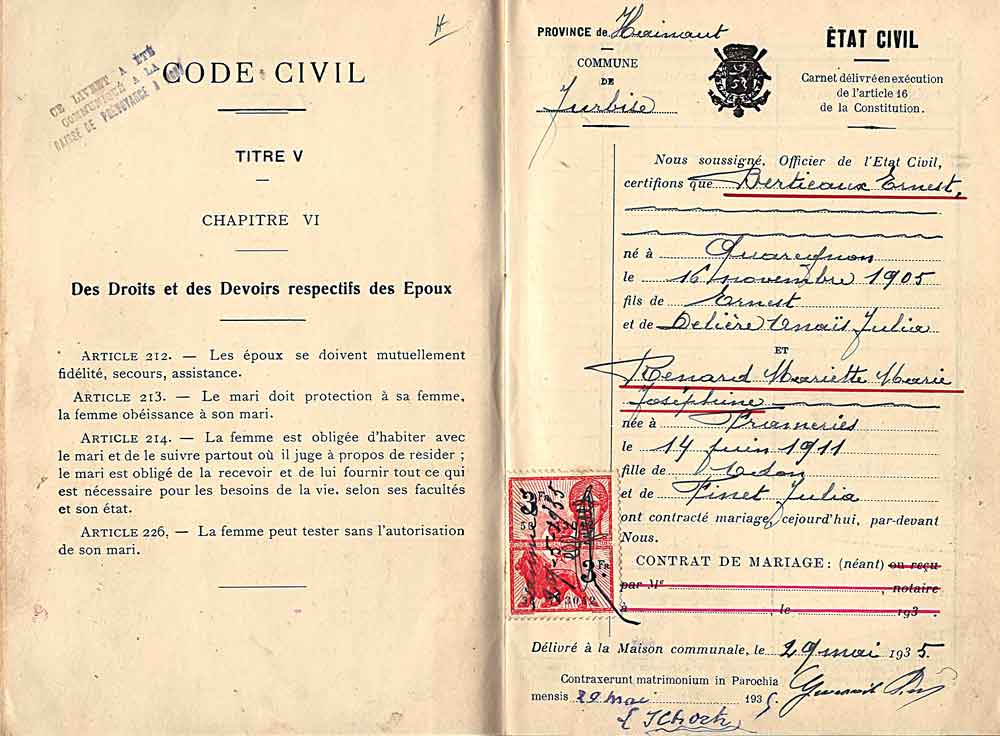 H
CE LIVRET A ÉTÉ
COMMUNIQUÉ A LA
CAISSE DE PRÉVOYANCE A
CODE CIVIL
TITRE V
CHAPITRE VI
Des Droits et des Devoirs respectifs des Epoux
ARTICLE 212. — Les époux se doivent mutuellement
fidélité, secours, assistance.
ARTICLE 213. — Le mari doit protection à sa femme,
la femme obéissance à son mari.
ARTICLE 214. — La femme est obligée d'habiter avec
le mari et de le suivre partout où il juge à propos de resider ;
le mari est obligé de la recevoir et de lui fournir tout ce qui
est nécessaire pour les besoins de la vie. selon ses facultés
et son état.
ARTICLE 226, — La femme peut tester sans l'autorisation
de son mari.
PROVINCE de Hainaut
COMMUNE
DE
Jurbise
ÉTAT CIVIL
Carnet délivré en exécution
de l'article 16
de la Constitution.
Nous soussigné, Officier de l'Etat Civil,
certifions que Bertieaux Ernest,
né à Quaregnon
le 16 novembre 1905
fils de Ernest
et de Delière Anaïs Julia
ET
Renard Mariette Marie
Joséphine
née à Frameries
le 14 juin 1911
fille de Léon
et de Finet Julia
ont contracté mariage, cejourd'hui, par-devant
Nous.
CONTRAT DE MARIAGE : (néant) ou reçu
par Me , notaire
à , le 193 .
3 Fr.
3 Fr.
Délivré à la Maison communale, le 29 mai 1935.
Contraxerunt matrimonium in Parochia
mensis 29 mai 1935